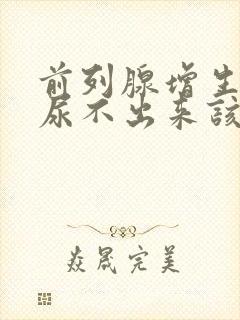 前列腺增生
尿不出来該
焱晟完美